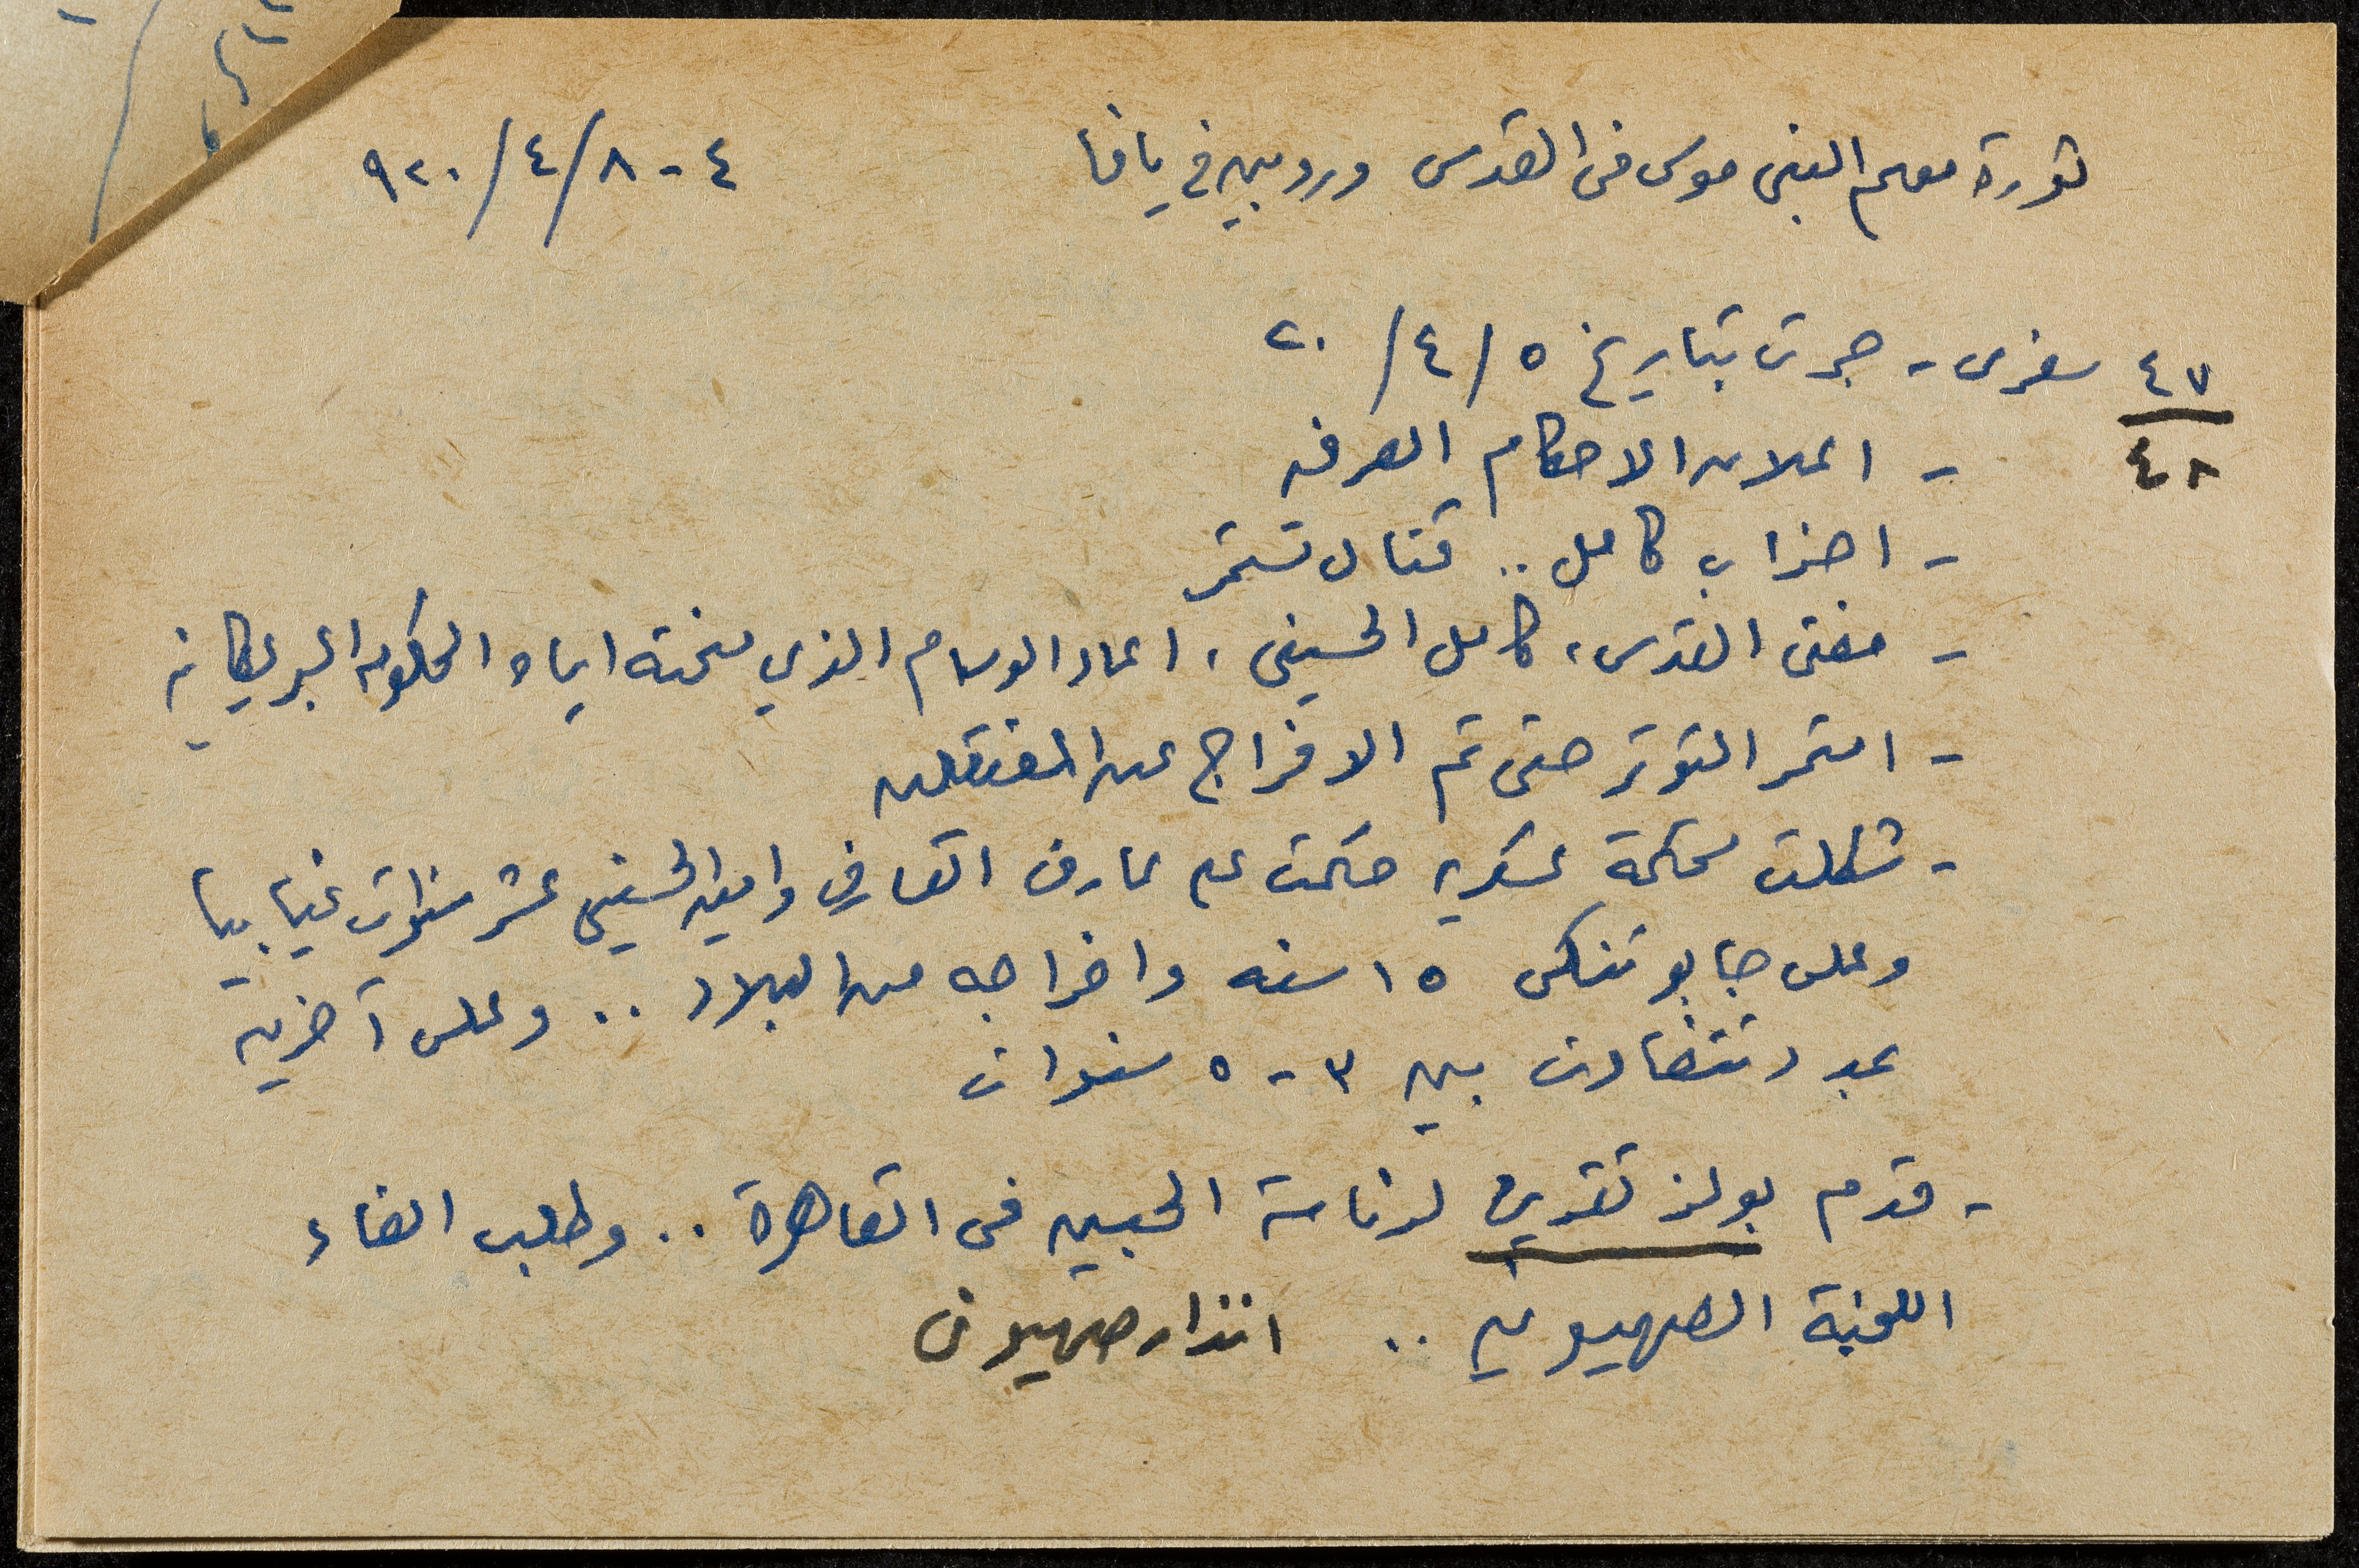 ثورة موسم النبي موسى في القدس وردوبين في يافا ٤ - ٨/٤/٩٢٠
٤٧ سفري - جرت بتاريخ ٥/٤/٢٠
٤٨ - اعلان الاحكام العرفيه
- اضراب كامل .. قتال تستمر
- مفتى القدس، كامل الحسيني، اعاد الوسام الذي منحته اياه الحكومه البريطانيه
- استمر التوتر حتى تم الافراج عن المعتقلين
- شكلت محكمة عسكريه حكمت على عارف العارف وامين الحسيني عشر سنوات غيابيا
وعلى جابوتنسكى ١٥ سنه واخراجه من البلاد .. وعلى آخرين
بمدد تتفاوت بين ٣ - ٥ سنوات
- قدم بولز تقريرا لرئاسة الجيش في القاهرة .. وطلب الغاء
اللجنة الصهيونيه .. انذار صهيوني